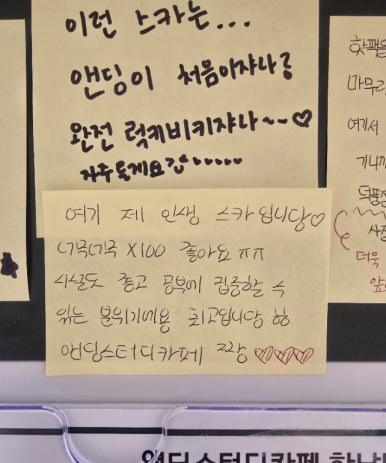 이런 스카는...
앤딩이 처음이쟈나?
완전 럭키비키쟈나~~♡
자주올게요
여기 제 인생 스카입니당♡
너국너국 X100 좋아요 ㅠㅠ
시설도 좋고 공부에 집중할 수
있는 분위기에용 최고입니당 힝
앤딩스터디카페 짱 ♡♡♡♡
핫팩을
마무리
여기서
기니까
덕풍
사장
더욱
앞으
앤딩스터디카페 하남